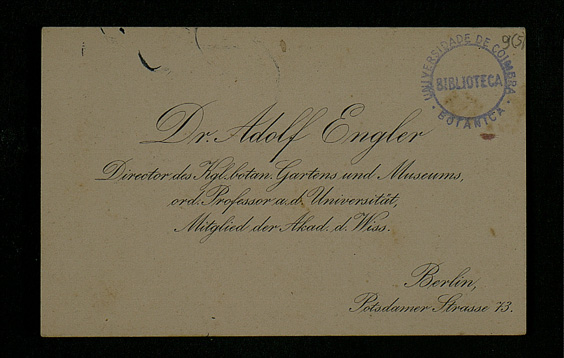 9(5)
UNIVERSIDADE DE COIMBRA
BIBLIOTECA
BOTANICA
Dr. Adolf Engler
Director des Kgl. botan. Gartens und Museums,
ord. Professor a. d. Universität,
Mitglied der Akad. d. Wiss.
Berlin,
Potsdamer Strasse 73.